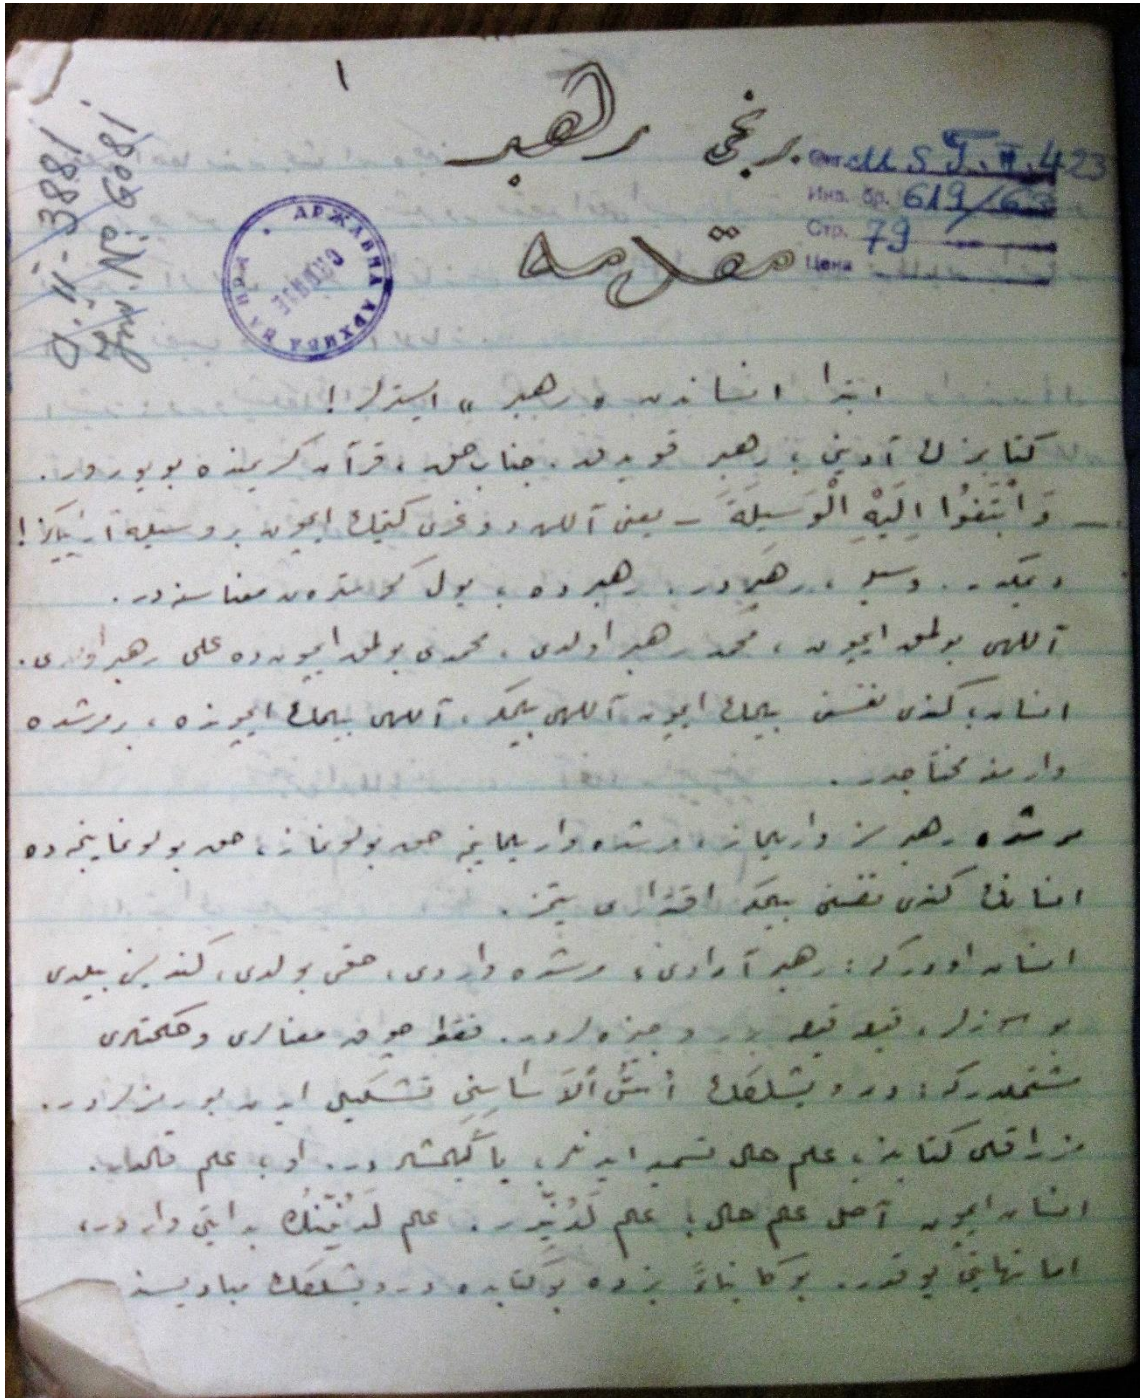 ١
برنجى رهبر
MS T. II. 423
Инв. бр. 619/63
Стр. 79
Цена
ДРЖАВНА АРХИВА НА
СКОПЈЕ
مقدمه
ابتدا انساندن «رهبر» ايسترلر!
كتابمزك آدينى، رهبر قويدق. جناب حق، قرآن كريمنده بويورور.
— وَابْتَغُوا اِلَيْهِ الْوَسيلَةَ — يعنى آللهه دوغرى كيتمك ايچون بر وسيله آراييكز!
ديمكدر. وسيله، رهبردر. رهبر ده، يول كوسترەن معناسنه در.
آللهى بولمق ايچون، محمد رهبر اولدى. محمدى بولمق ايچون ده على رهبر اولدى.
انسان، كندى نفسنى بيلمك ايچون آللهى بيلمك، آللهى بيلمك ايچونده، بر مرشده
وارمغه محتاجدر.
مرشده رهبرسز واريلماز، مرشده واريلماينجه حق بولونماز، حق بولونماينجه ده
انسانك كندى نفسنى بيلمكه اقتدارى يتمز.
انسان اودركه: رهبر آرادى، مرشده واردى، حقى بولدى، كنديسنى بيلدى
بو سوزلر، قيصه قيصه بر وجيزه لردر. فقط چوق معنالرى وحكمتلرى
مشتملدركه: درويشلكك اُسُّ اْلاَساسِنى تشكيل ايدن بو رمزلردر.
ميزراقلى كتابنه، علم حال تسميه ايدنلر، ياكيلمشلردر. او، علم قالدر.
انسان ايچون آصل علم حال، علم لَدُنّيدر. علم لَدُنّينك بدايتى واردر،
اما نهايتى يوقدر. بوكا بناءً بز ده بو كتابده درويشلكك مباديسنه